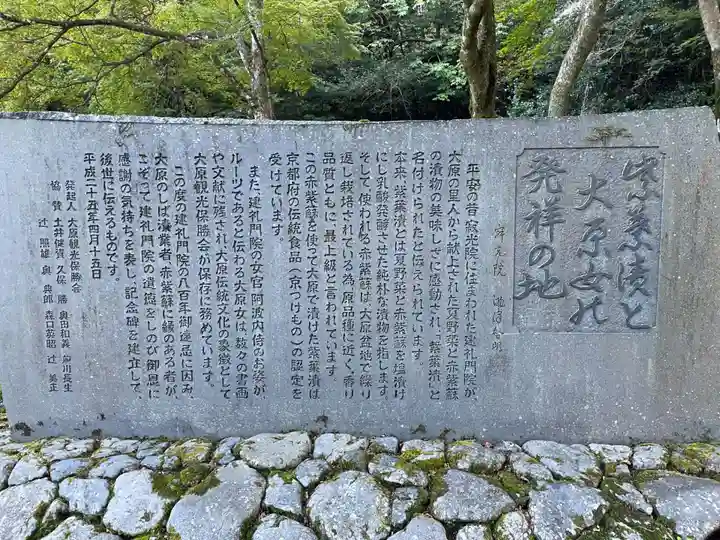 紫葉漬と
大原女の
発祥の地
寂光院
平安の昔寂光院に住まわれた建礼門院が、
大原の里人から献上された夏野菜と赤紫蘇
の漬物の美味しさに感動され、「紫葉漬」と
名付けられたと伝えられています。
本来、紫葉漬とは夏野菜と赤紫蘇を塩漬け
にし乳酸発酵させた純朴な漬物を指します。
そして使われる赤紫蘇は、大原盆地で繰り
返し栽培されている為、原品種に近く、香り
品質ともに、最上級と言われています。
この赤紫蘇を使って大原で漬けた紫葉漬は
京都府の伝統食品（京つけもの）の認定を
受けています。
また、建礼門院の女官、阿波内侍のお姿が、
ルーツであると伝わる大原女は、数々の書画
や文献に残され、大原伝統文化の象徴として
大原観光保勝会が保存に務めています。
この度の建礼門院の八百年御遠忌に因み、
大原のしば漬業者、赤紫蘇に縁のある者が、
こぞって建礼門院の遺徳をしのび御恩に
感謝の気持ちを表し、記念碑を建立して、
後世に伝えるものです。
平成二十五年四月十五日
発起人 大原観光保勝会
協賛 土井健資 久保 勝 奥田和義 細川長生
辻 照雄 奥 典郎 森口英昭 辻 美正